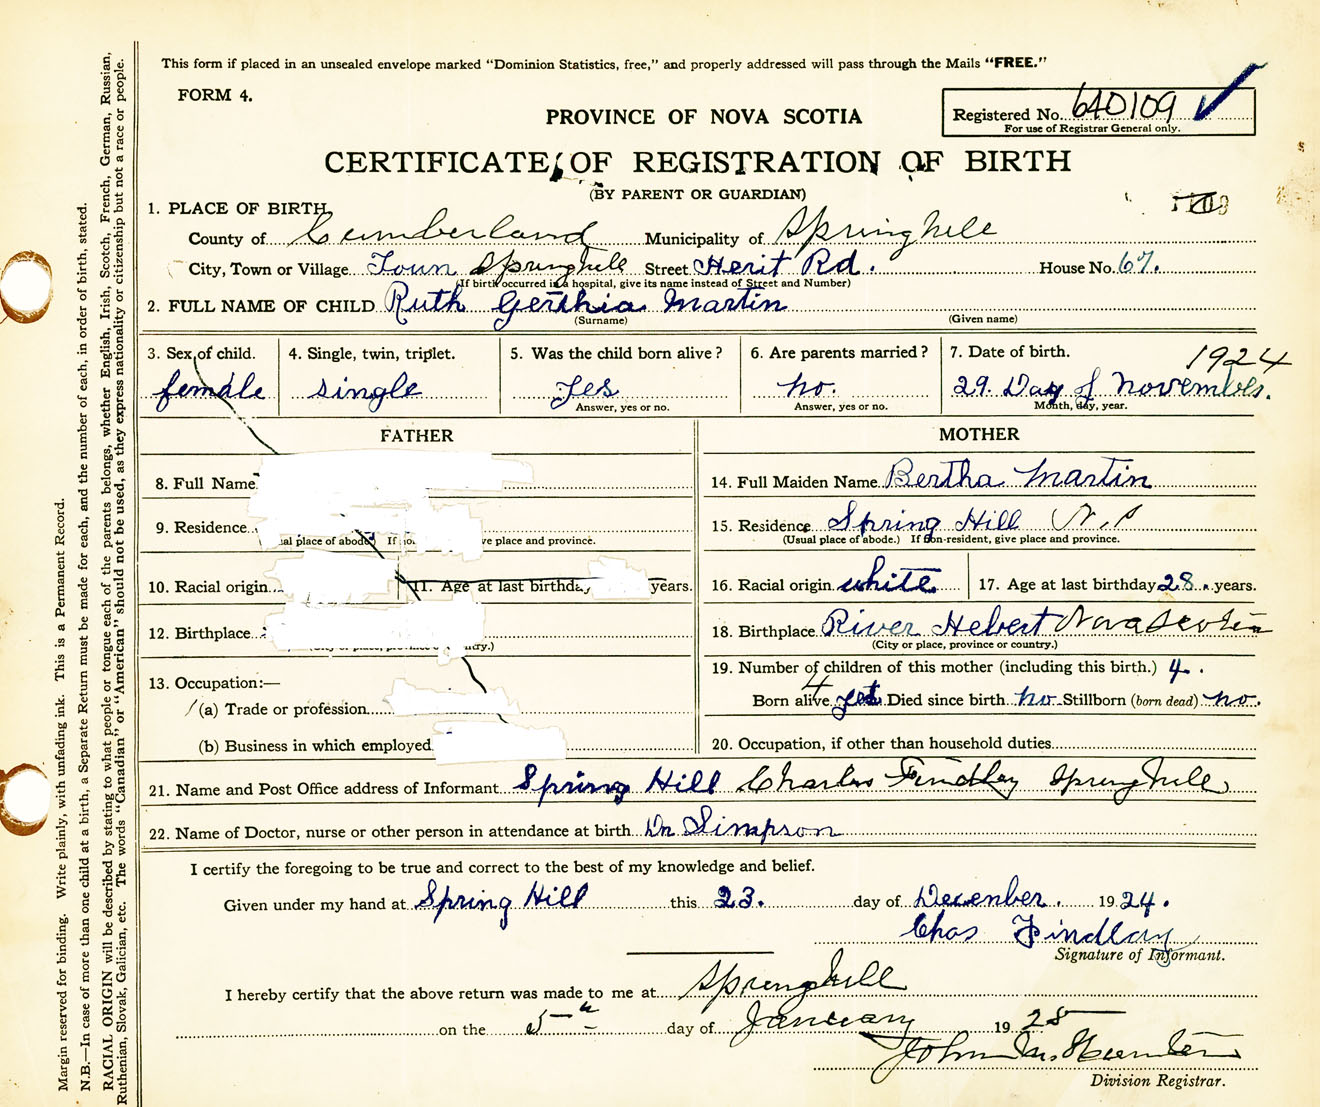 This form if placed in an unsealed envelope marked "Dominion Statistics, free," and properly addressed will pass through the Mails "FREE."
FORM 4.
PROVINCE OF NOVA SCOTIA
Registered No. 640109
For use of Registrar General only.
CERTIFICATE OF REGISTRATION OF BIRTH
(BY PARENT OR GUARDIAN)
1. PLACE OF BIRTH
County of Cumberland Municipality of Springhill
City, Town or Village Town Springhill Street Herit Rd. House No. 67.
(If birth occurred in a hospital, give its name instead of Street and Number)
2. FULL NAME OF CHILD Ruth Gerthia Martin
(Surname) (Given name)
3. Sex of child. 4. Single, twin, triplet. 5. Was the child born alive? 6. Are parents married? 7. Date of birth. 1924
female single Yes no. 29. Day of November.
Answer, yes or no. Answer, yes or no. Month, day, year.
FATHER MOTHER
8. Full Name 14. Full Maiden Name Bertha Martin
9. Residence 15. Residence Spring Hill N.S
ual place of abode.) If no. ve place and province. (Usual place of abode.) If non-resident, give place and province.
10. Racial origin 11. Age at last birthday years. 16. Racial origin white 17. Age at last birthday 28. years.
12. Birthplace 18. Birthplace River Hebert Nova Scotia
(City or place, province ntry.) (City or place, province or country.)
13. Occupation:— 19. Number of children of this mother (including this birth.) 4.
(a) Trade or profession Born alive 4 yes Died since birth no Stillborn (born dead) no.
(b) Business in which employed 20. Occupation, if other than household duties
21. Name and Post Office address of Informant Spring Hill Charles Findlay Springhill
22. Name of Doctor, nurse or other person in attendance at birth Dr Simpson
I certify the foregoing to be true and correct to the best of my knowledge and belief.
Given under my hand at Spring Hill this 23. day of December. 1924.
Chas Findlay
Signature of Informant.
I hereby certify that the above return was made to me at Springhill
on the 5th day of January 1925
John
Division Registrar.
Margin reserved for binding. Write plainly, with unfading ink. This is a Permanent Record.
N.B.—In case of more than one child at a birth, a Separate Return must be made for each, and the number of each, in order of birth, stated.
RACIAL ORIGIN will be described by stating to what people or tongue each of the parents belongs, whether English, Irish, Scotch, French, German, Russian,
Ruthenian, Slovak, Galician, etc. The words "Canadian" or "American" should not be used, as they express nationality or citizenship but not a race or people.